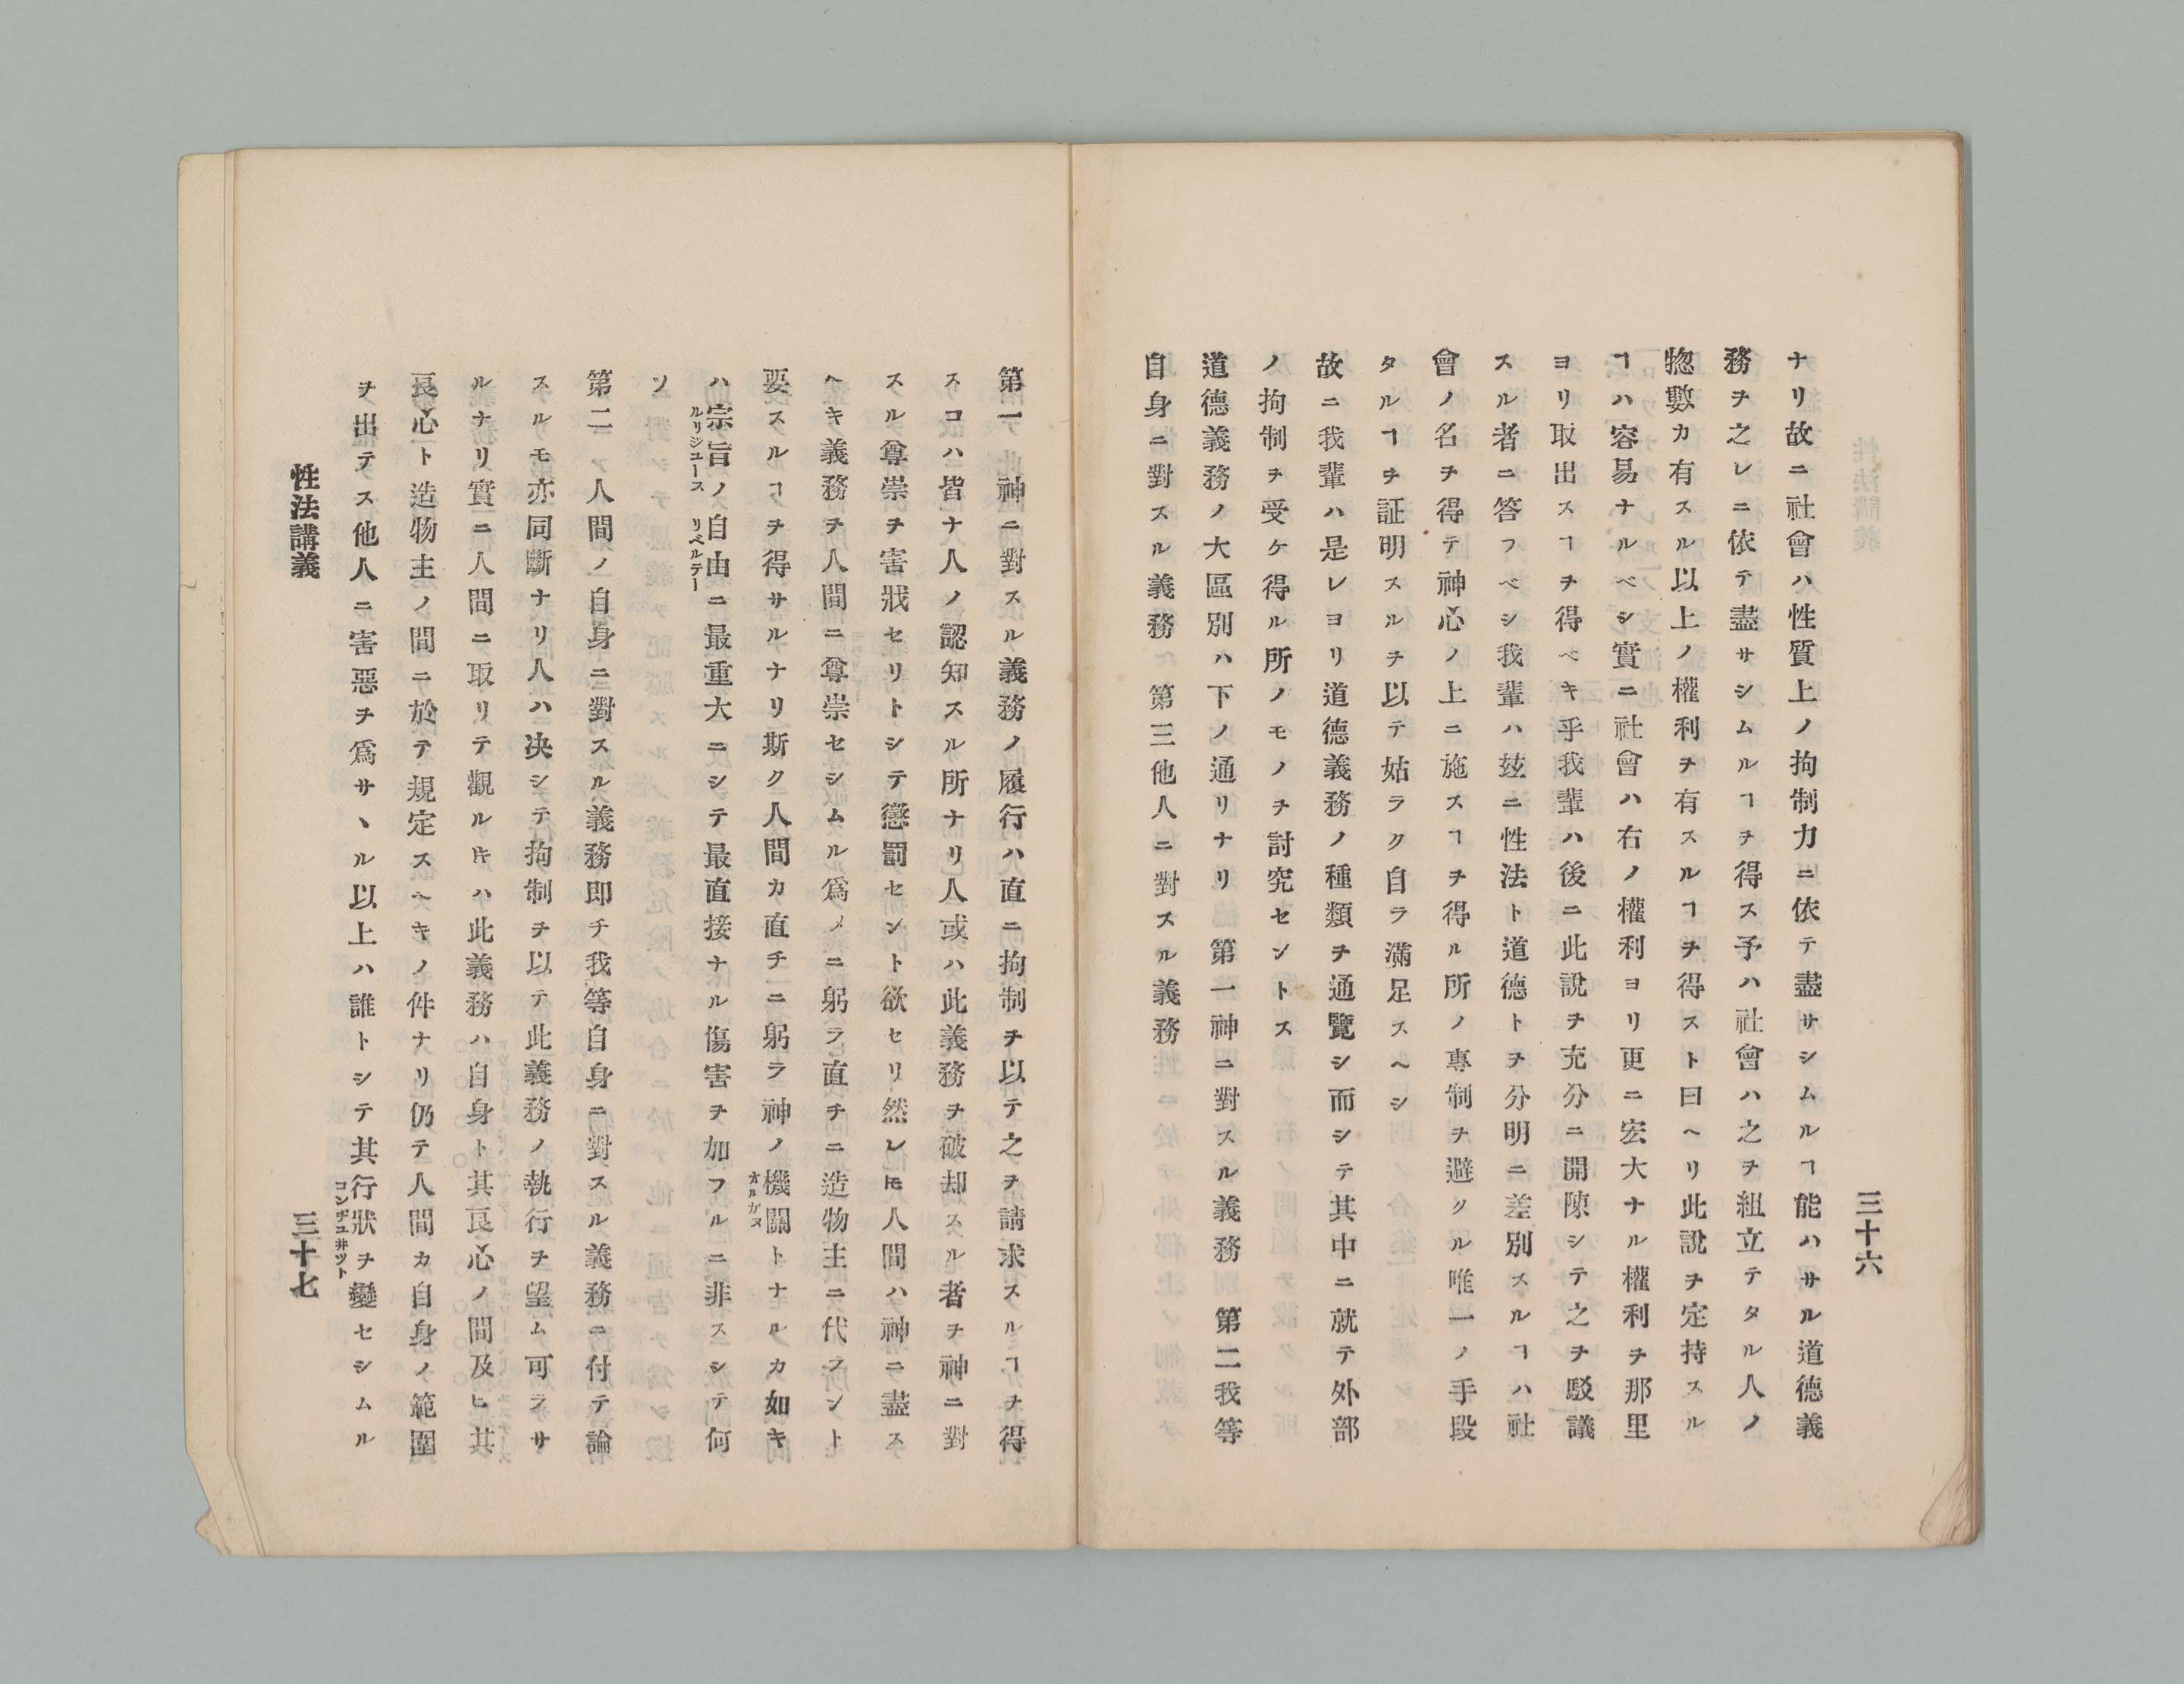 三十六
ナリ故ニ社會ハ性質上ノ拘制力ニ依テ盡サシムルヿ能ハサル道德義
務ヲ之レニ依テ盡サシムルヿヲ得ス予ハ社會ハ之ヲ組立テタル人ノ
惣數カ有スル以上ノ權利ヲ有スルヿヲ得スト曰ヘリ此說ヲ定持スル
ヿハ容易ナルベシ實ニ社會ハ右ノ權利ヨリ更ニ宏大ナル權利ヲ那里
ヨリ取出スヿヲ得ベキ乎我輩ハ後ニ此說ヲ充分ニ開陳シテ之ヲ駁議
スル者ニ答フベシ我輩ハ玆ニ性法ト道德トヲ分明ニ差別スルヿハ社
會ノ名ヲ得テ神心ノ上ニ施スヿヲ得ル所ノ專制ヲ避クル唯一ノ手段
タルヿヲ証明スルヲ以テ姑ラク自ラ滿足スヘシ
故ニ我輩ハ是レヨリ道德義務ノ種類ヲ通覽シ而シテ其中ニ就テ外部
ノ拘制ヲ受ケ得ル所ノモノヲ討究セントス
道德義務ノ大區別ハ下ノ通リナリ　第一神ニ對スル義務　第二我等
自身ニ對スル義務　第三他人ニ對スル義務
第一神ニ對スル義務ノ履行ハ直ニ拘制ヲ以テ之ヲ請求スルヿヲ得
スコハ皆ナ人ノ認知スル所ナリ人或ハ此義務ヲ破却スル者ヲ神ニ對
スル尊崇ヲ害狀セリトシテ懲罰セント欲セリ然レ𪜈人間ハ神ニ盡ス
ヘキ義務ヲ人間ニ尊崇セシムル爲メニ躬ラ直チニ造物主ニ代ラント
要スルヿヲ得サルナリ斯ク人間カ直チニ躬ラ神ノ機關トナルカ如キ
オルガヌ
ハ宗旨ノ自由ニ最重大ニシテ最直接ナル傷害ヲ加フルニ非スシテ何
ルリジユース　リベルテー
ソ
第二　人間ノ自身ニ對スル義務即チ我等自身ニ對スル義務ニ付テ論
スルモ亦同斷ナリ人ハ决シテ拘制ヲ以テ此義務ノ執行ヲ望ム可ラサ
ルナリ實ニ人間ニ取リテ觀ル𪜈ハ此義務ハ自身ト其良心ノ間及ヒ其
良心ト造物主ノ間ニ於テ規定スヘキノ件ナリ仍テ人間カ自身ノ範圍
ヲ出テス他人ニ害惡ヲ爲サヽル以上ハ誰トシテ其行狀ヲ變セシムル
コンヂユ井ツト
性法講義
三十七